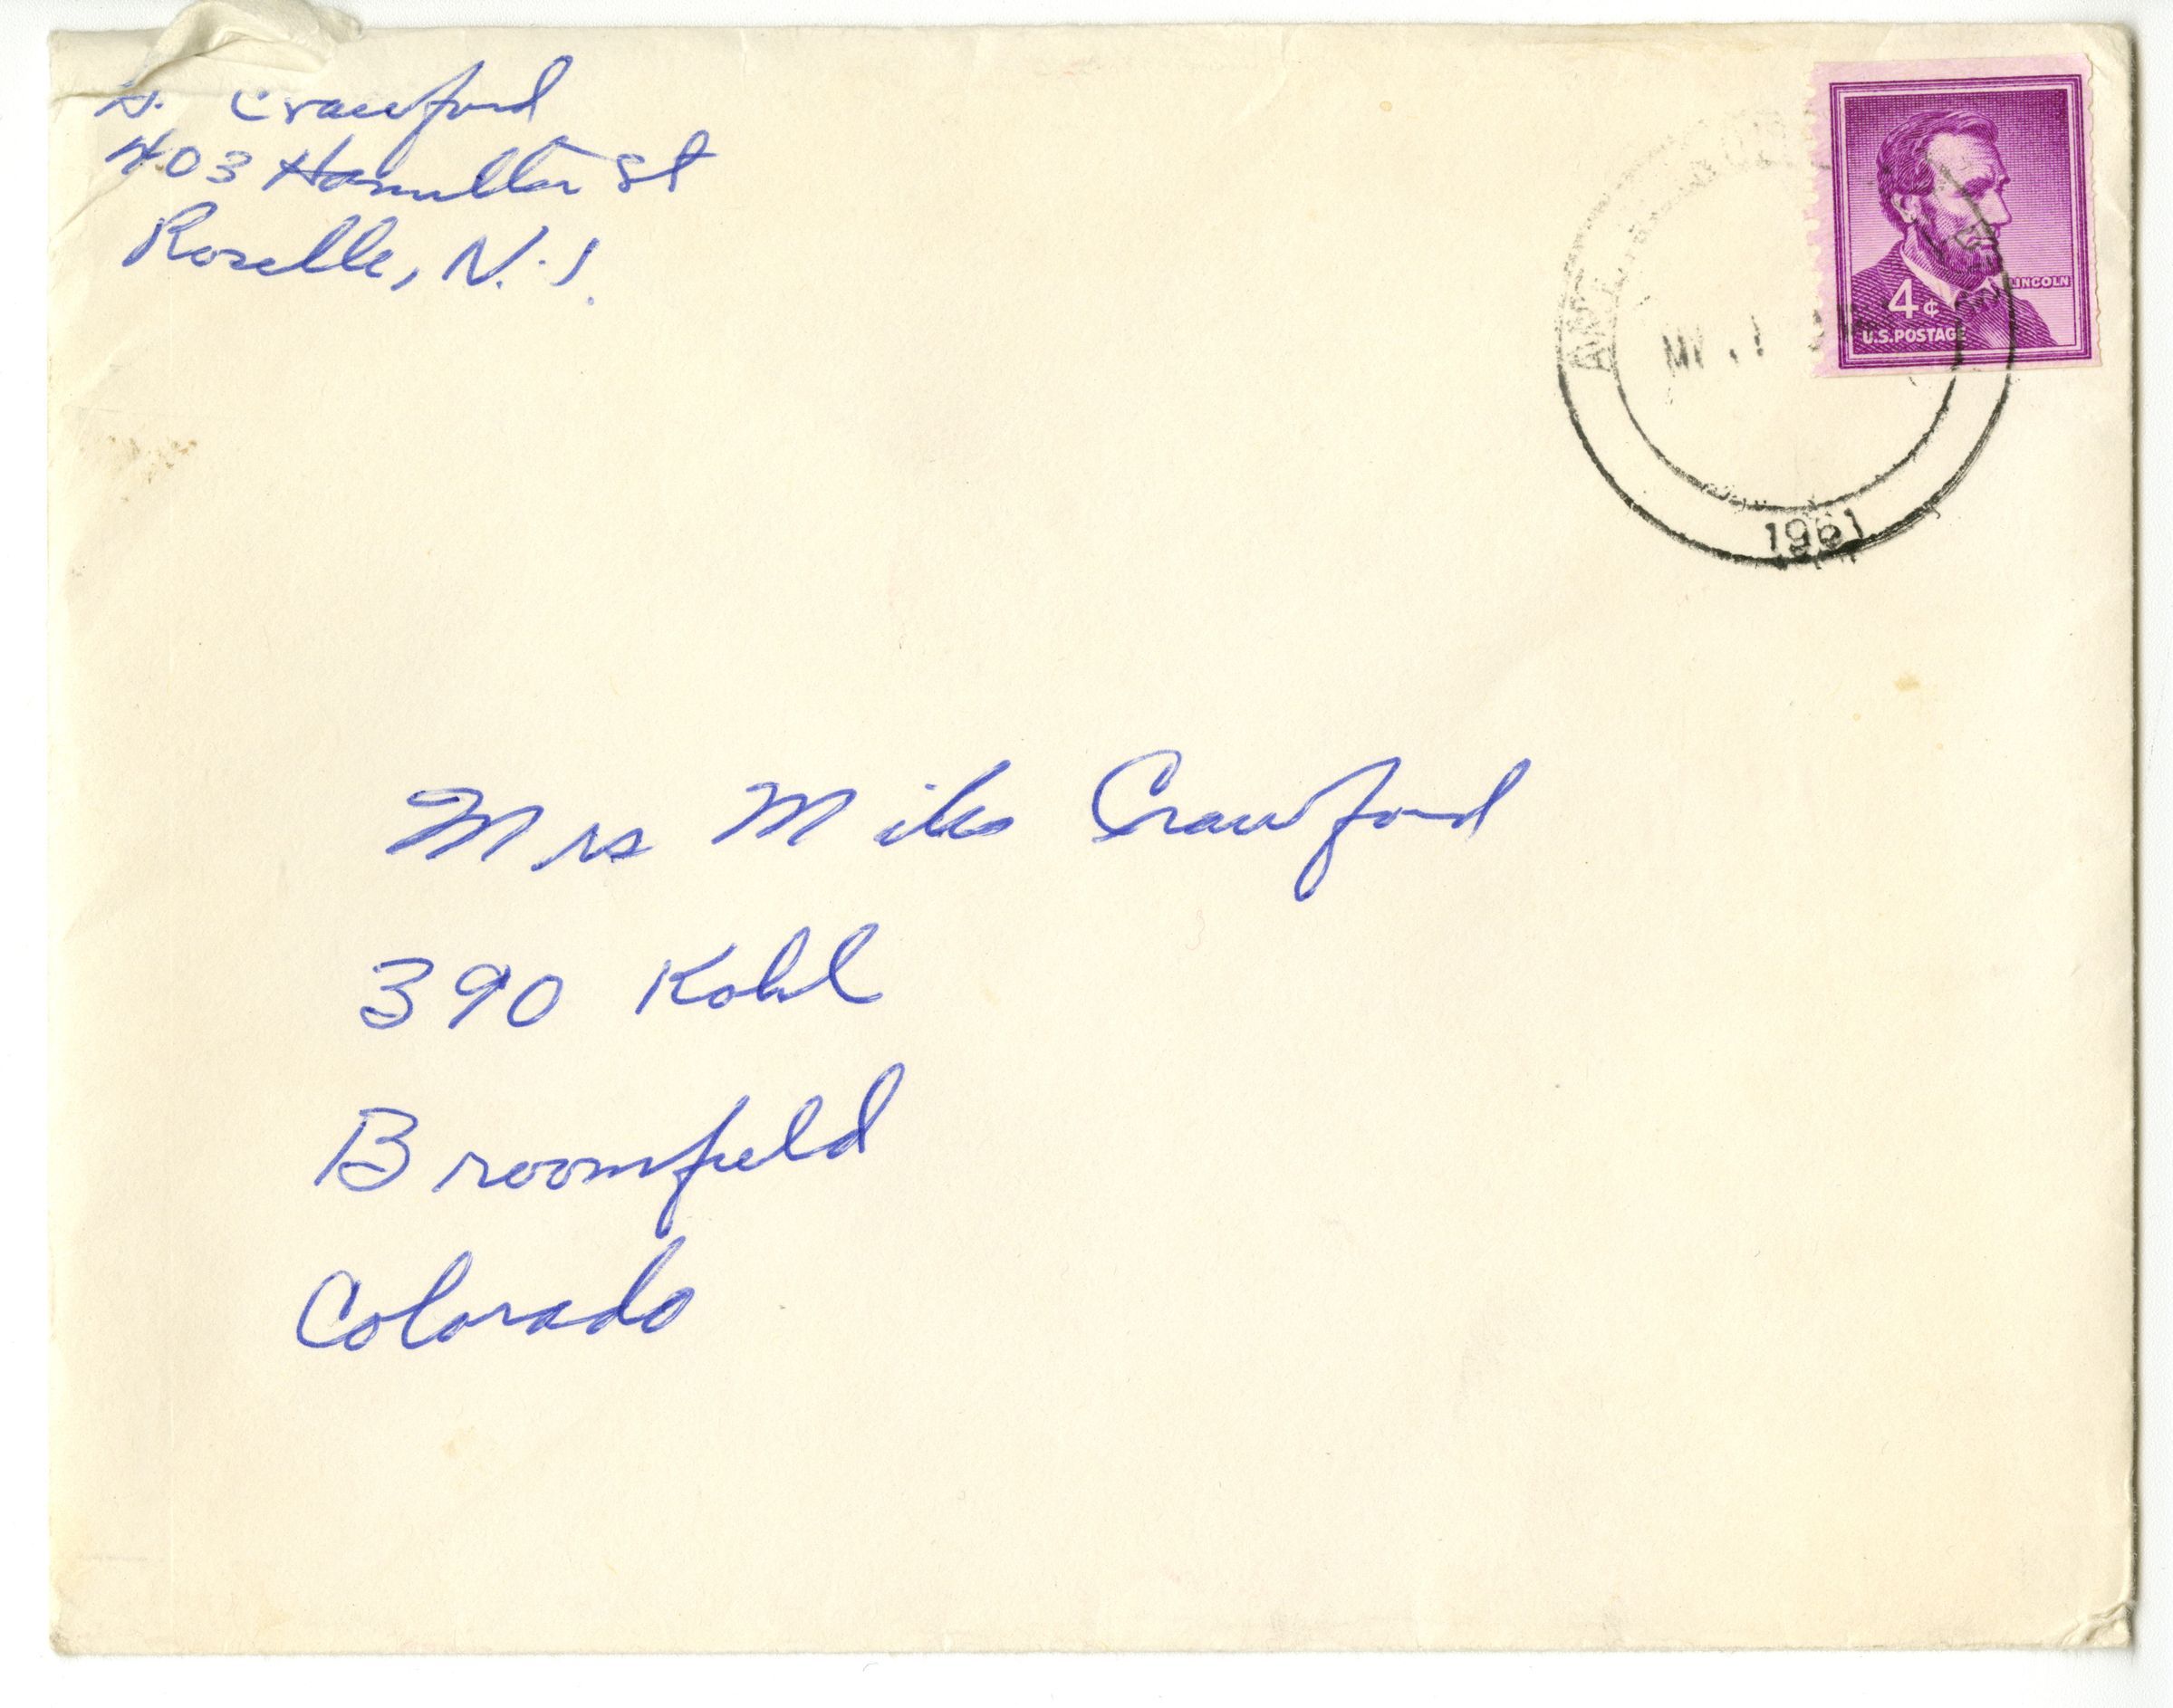 Crawford
403 Hamilton St
Roselle, N.J.
LINCOLN
4¢
U.S. POSTAGE
1961
Mrs Mike Crawford
390 Kohl
Broomfield
Colorado